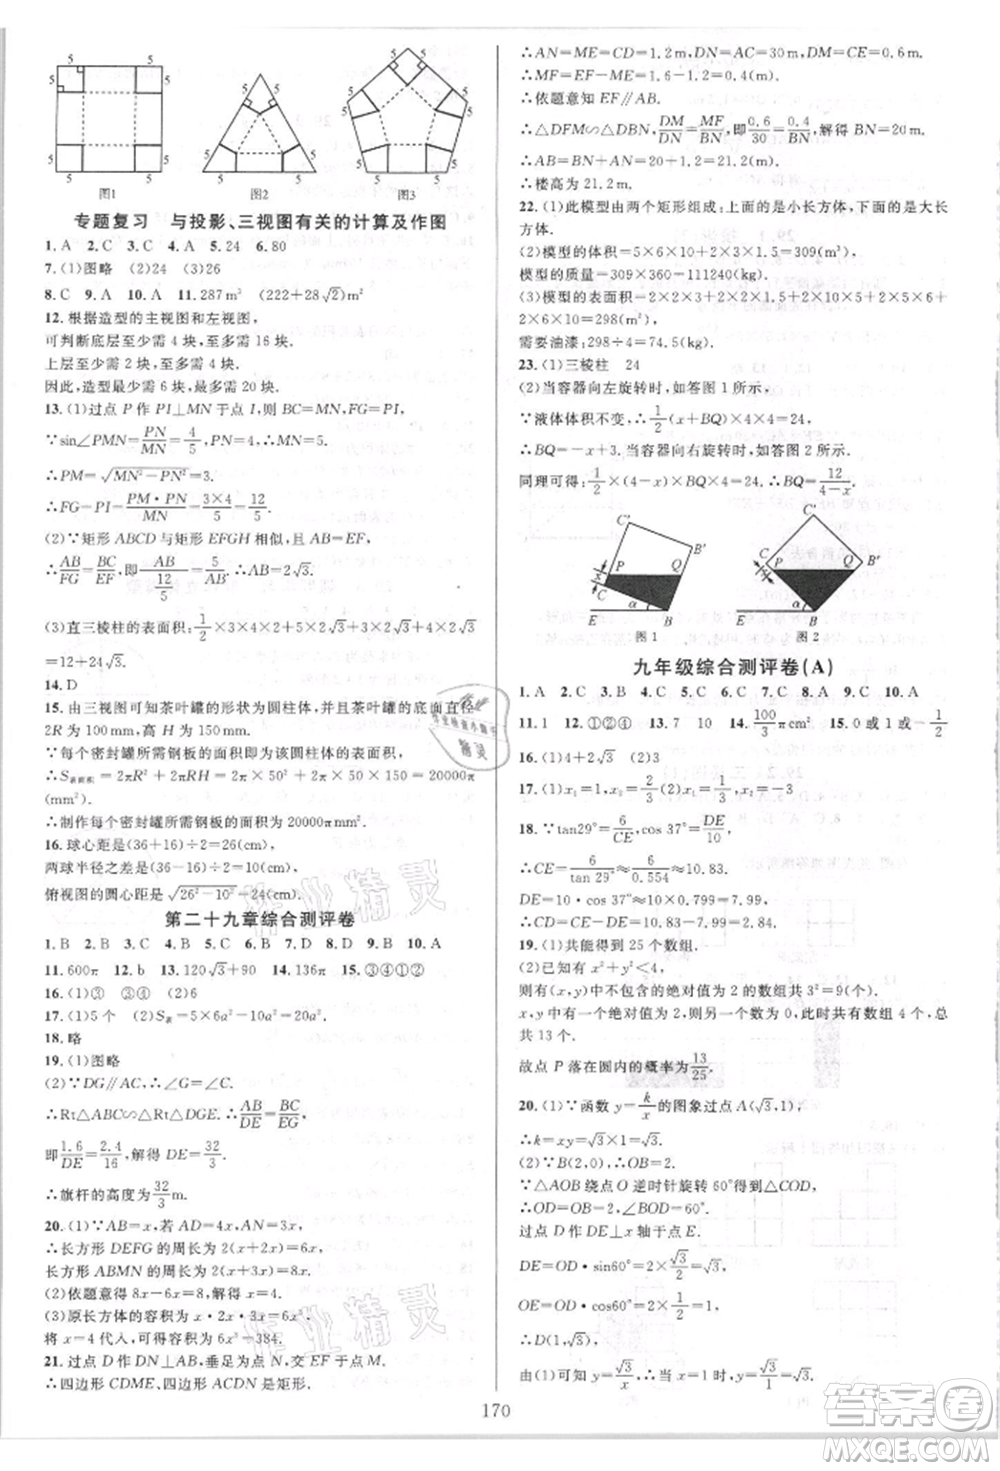 5 5 5 5 5 5 5 5
图1
5 5 5 5 5 5
图2
5 5 5 5 5 5 5 5 5 5
图3
专题复习 与投影、三视图有关的计算及作图
1. A 2. C 3. C 4. A 5. 24 6. 80
7. (1)图略 (2)24 (3)26
8. C 9. A 10. A 11. 287 m³ (222+28√2) m²
12. 根据造型的主视图和左视图,
可判断底层至少需 4 块,至多需 16 块.
上层至少需 2 块,至多需 4 块.
因此,造型最少需 6 块,最多需 20 块.
13. (1)过点 P 作 PI⊥MN 于点 I,则 BC=MN,FG=PI.
∵sin∠PMN=PN/MN=4/5,∴PN=4.∵BC=MN=5,
∴PM=√(MN²-PN²)=3.
∴FG=PI=PM·PN/MN=3×4/5=12/5.
(2)∵矩形 ABCD 与矩形 EFGH 相似,且 AB=EF,
∴AB/FG=BC/EF,即AB/(12/5)=5/AB,∴AB=2√3.
(3)直三棱柱的表面积:1/2×3×4×2+5×2√3+3×2√3+4×2√3
=12+24√3.
14. D
15. 由三视图可知茶叶罐的形状为圆柱体,并且茶叶罐的底面直径
2R 为 100 mm,高 H 为 150 mm.
∵每个密封罐所需钢板的面积即为该圆柱体的表面积,
∴S表面积=2πR²+2πRH=2π×50²+2π×50×150=20000π
(mm²).
∴制作每个密封罐所需钢板的面积为 20000π mm².
16. 球心距为(36+16)÷2=26(cm),
两球半径之差是(36-16)÷2=10(cm),
俯视图的圆心距应为√(26²-10²)=24(cm)
第二十九章综合测评卷
1. B 2. B 3. C 4. B 5. C 6. B 7. C 8. D 9. B 10. A
11. 600π 12. b 13. 120√3+90 14. 136π 15. ③④①②
16. (1)③ ④ ① (2)6
17. (1)5 个 (2)S表=5×6a²-10a²+2a²=22a²
18. 略
19. (1)图略
(2)∵DG∥AC,∴∠G=∠C.
∴Rt△ABC∽Rt△DGE.∴AB/DE=BC/EG,
即1.6/DE=2.4/16,解得 DE=32/3.
∴旗杆的高度为32/3 m.
20. (1)∵AB=x,若 AD=4x,AN=3x,
∴长方形 DEFG 的周长为 2(x+2x)=6x,
长方形 ABMN 的周长为 2(x+3x)=8x.
(2)依题意得 8x-6x=8,解得 x=4.
(3)原长方体的容积为 x·2x·3x=6x³,
将 x=4 代入,可得容积 6x³=384.
21. 过点 D 作 DN⊥AB,垂足为点 N,交 EF 于点 M,
∴四边形 CDME,四边形 ACDN 是矩形.
∴AN=ME=CD=1.2 m,DN=AC=30 m,DM=CE=0.6 m.
∴MF=EF-ME=0.4(m).
∴依题意知 EF∥AB.
∴△DFM∽△DBN,DM/DN=MF/BN,即0.6/30=0.4/BN,解得 BN=20 m.
∴AB=BN+AN=20+1.2=21.2(m).
∴楼高为 21.2 m.
22. (1)此模型由两个矩形组成:上面的是小长方体,下面的是大长
方体.
(2)模型的体积=5×6×10+1.5×3×2=309(m³),
模型的质量=309×360=111240(kg).
(3)模型的表面积=2×2×3+2×1.5×2+5×10×2+6×5×2+
2×6×10=298(m²),
需要油漆:298÷4=74.5(kg).
23. (1)三棱柱 24
(2)当容器向左旋转时,如答图 1 所示,
∵液体体积不变,∴1/2(x+BQ)×4×4=24,
∴BQ=-x+3.当容器向右旋转时,如答图 2 所示.
同理可得:1/2×(4-x)×BQ×4=24,∴BQ=12/(4-x).
C' B' P Q x C E α B
图 1
C' B' C P Q x E α B
图 2
九年级综合测评卷(A)
1. A 2. C 3. B 4. C 5. D 6. C 7. C 8. A 9. C 10. A
11. 1 12. ①②④ 13. 7 10 14. 100/3 π cm² 15. 0 或 1 或 -1/2
16. (1)4+2√3 (2)3
17. (1)x₁=1,x₂=2/3 (2)x₁=1,x₂=-3
18. ∵tan29°=6/CE,cos 37°=DE/10,
∴CE=6/tan 29°≈6/0.554≈10.83,
DE=10·cos37°≈10×0.799=7.99,
∴CD=CE-DE=10.83-7.99≈2.8.
19. (1)共能得到 25 个数组.
(2)已知有 x²+y²<4,
则有(x,y)中不包含的绝对值为 2 的数组共 3²=9(个).
x,y 中只有一个的绝对值为 2,另一个为 0 的数组 4 个,总
共 13 个.
故过点 P 落在圆内的概率为13/25.
20. (1)∵函数 y=k/x的图象过点 A(√3,1),
∴k=xy=√3×1=√3.
(2)∵B(0,2),∴OB=2.
∵△AOB 绕点 O 逆时针旋转 60°得到△COD,
∴OD=OB=2,∠BOD=60°.
过点 D 作 DE⊥x 轴于点 E,
DE=OD·sin60°=2×√3/2=√3,
OE=OD·cos60°=2×1/2=1,
∴D(1,√3).
由(1)可知 y=√3/x,∴当 x=1 时,y=√3/1=√3.
170
作业精灵
作业精灵
答案圈
MXQE.COM